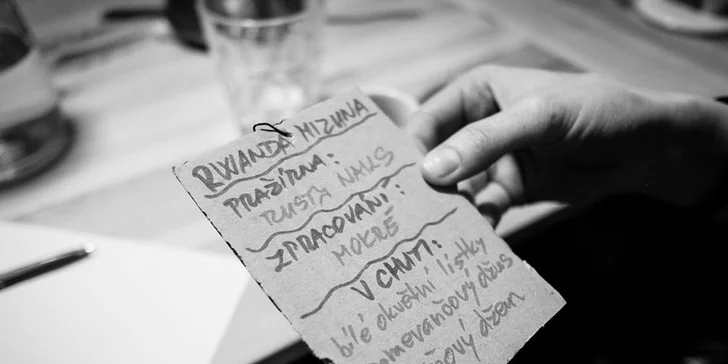 RWANDA MIZUNA
PRAŽÍRNA:
RUSTY NAILS
ZPRACOVÁNÍ:
MOKRÉ
V CHUTI:
bílé okvětní lístky
džus
džem